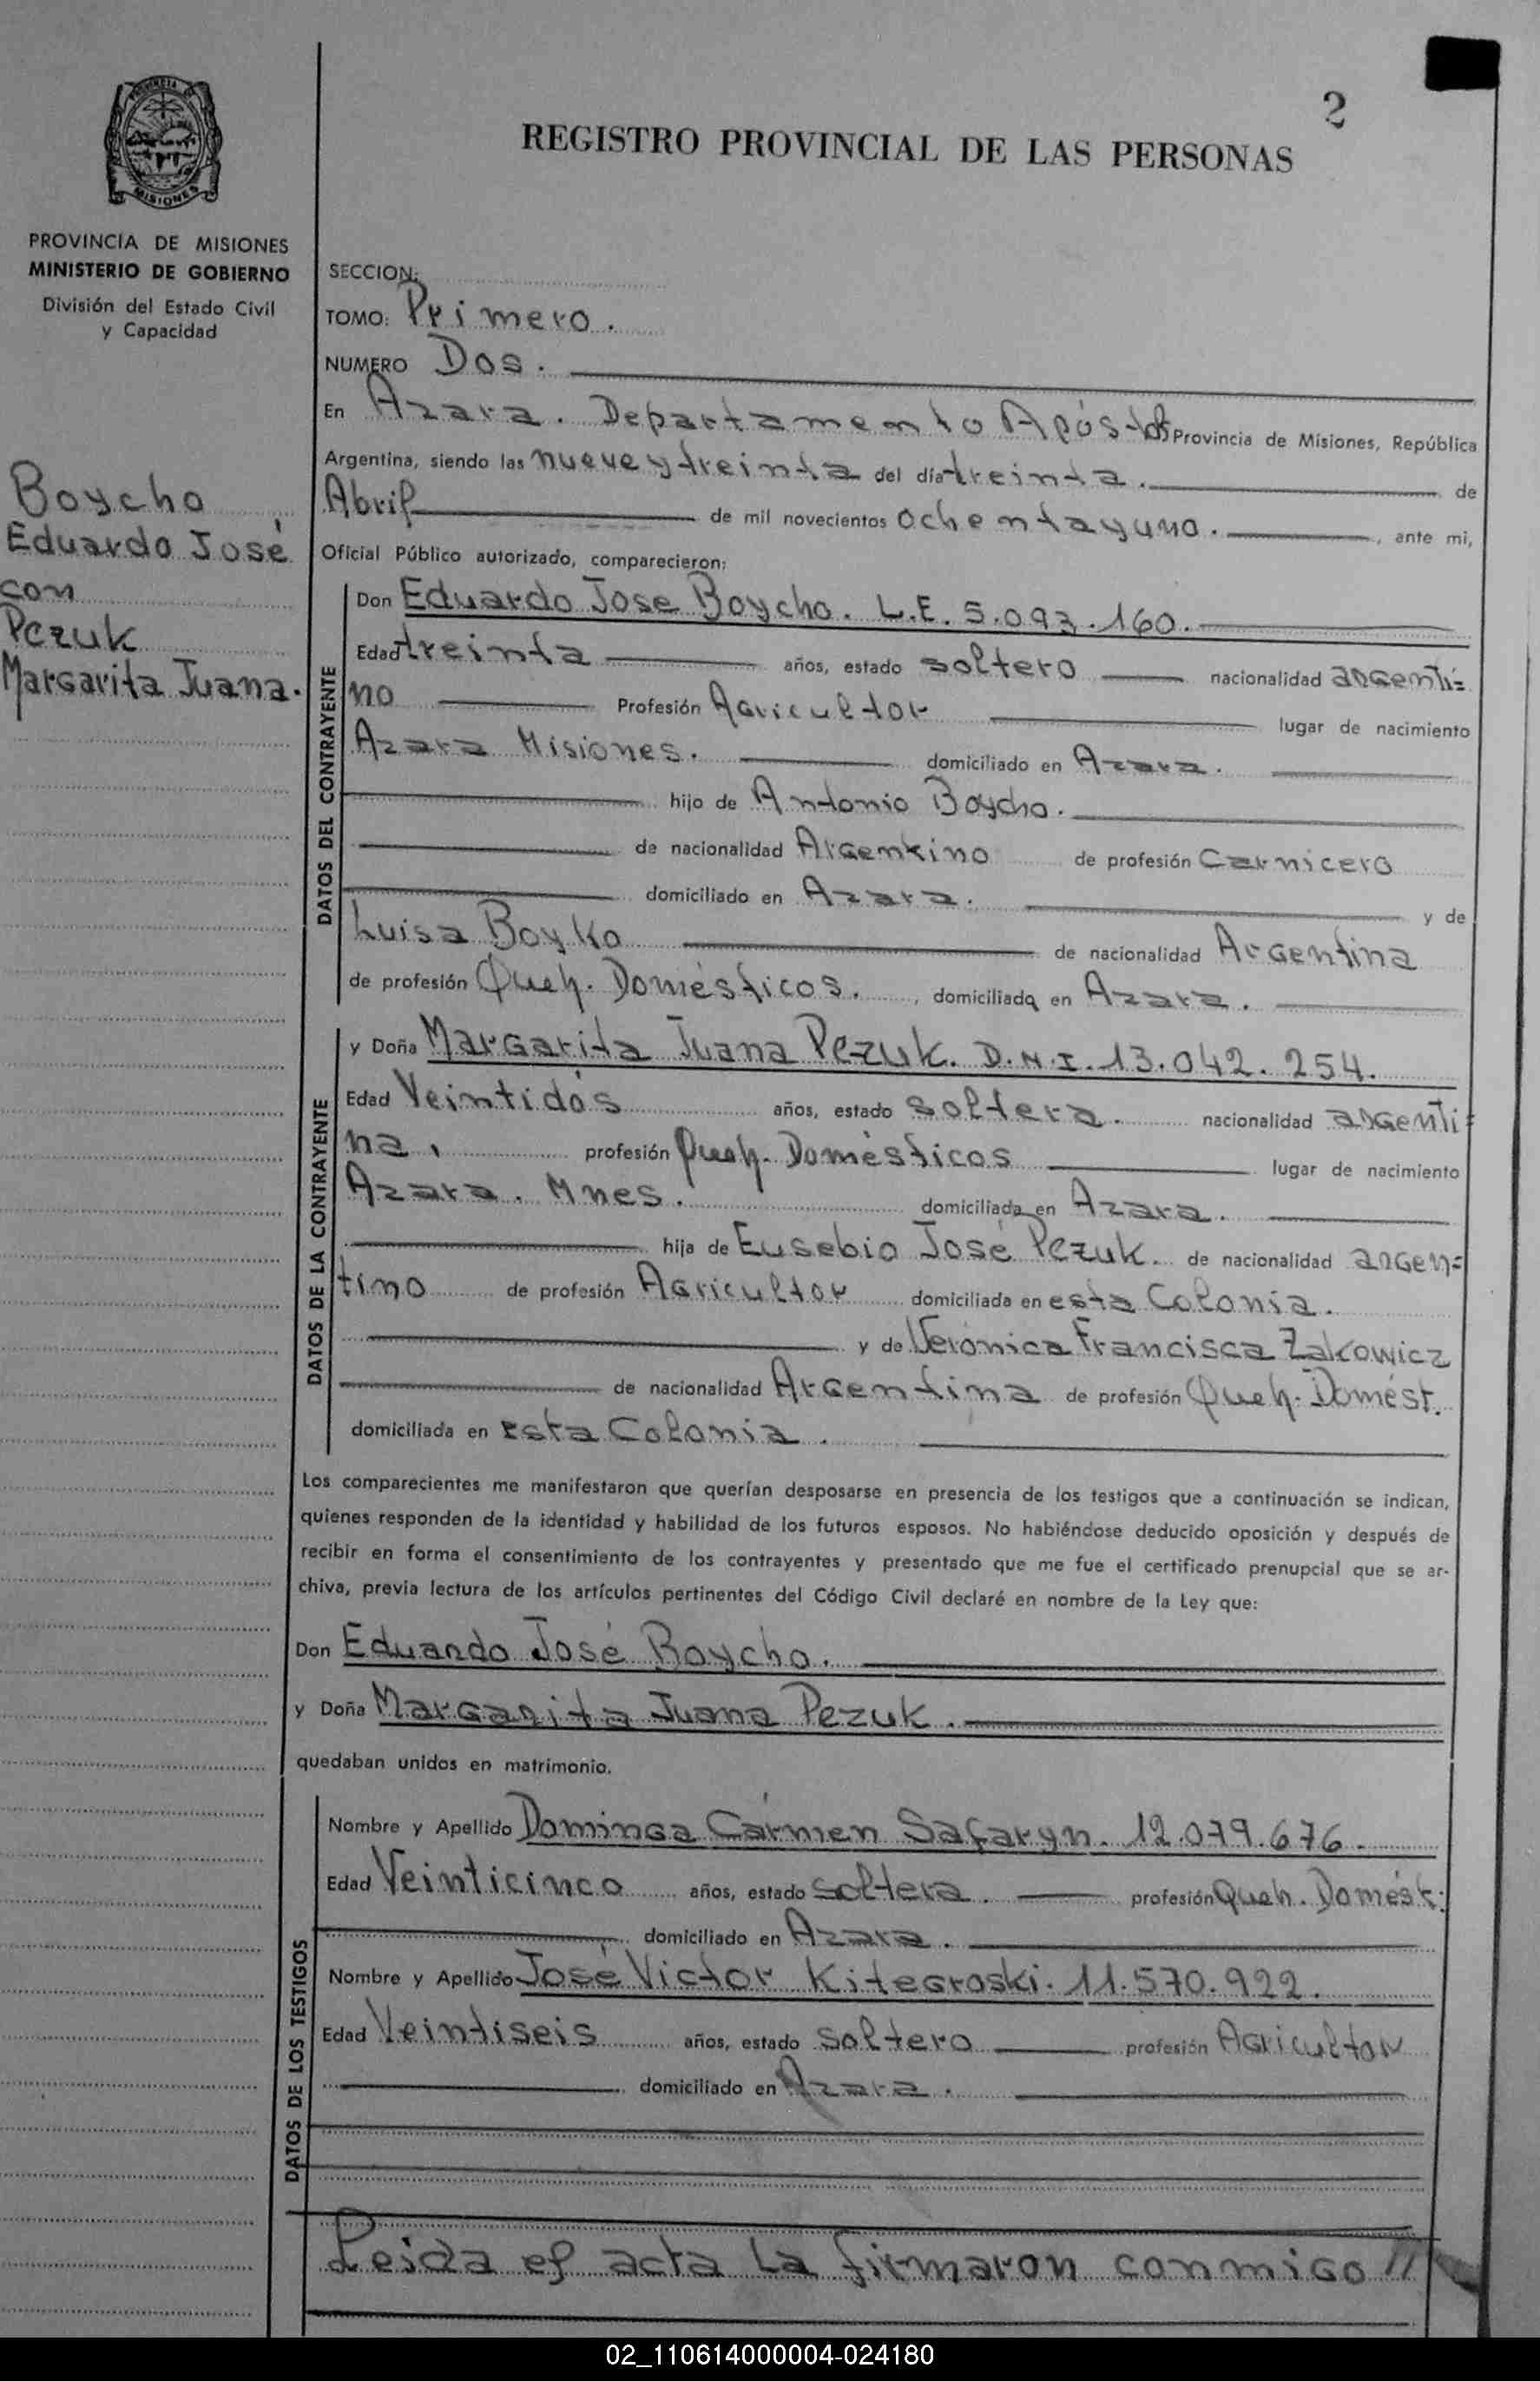 2
REGISTRO PROVINCIAL DE LAS PERSONAS
PROVINCIA DE MISIONES
PROVINCIA DE MISIONES
MINISTERIO DE GOBIERNO
División del Estado Civil
y Capacidad
Boycho
Eduardo José
con
Pezuk
Margarita Juana.
SECCION:
TOMO: Primero.
NUMERO Dos.
En Azara. Departamento Apóstoles Provincia de Misiones, República
Argentina, siendo las nueve y treinta del día treinta. de
Abril de mil novecientos ochenta y uno. , ante mi,
Oficial Público autorizado, comparecieron:
DATOS DEL CONTRAYENTE
Don Eduardo Jose Boycho. L.E. 5.093.160.
Edad treinta años, estado soltero nacionalidad argenti=
no Profesión Agricultor lugar de nacimiento
Azara Misiones. domiciliado en Azara.
hijo de Antonio Boycho.
de nacionalidad Argentino de profesión Carnicero
domiciliado en Azara. y de
Luisa Boyko de nacionalidad Argentina
de profesión Queh. Domésticos. , domiciliada en Azara.
DATOS DE LA CONTRAYENTE
y Doña Margarita Juana Pezuk. D.N.I. 13.042.254.
Edad Veintidós años, estado soltera. nacionalidad argenti=
na, profesión Queh. Domésticos lugar de nacimiento
Azara. Mnes. domiciliada en Azara.
hija de Eusebio José Pezuk. de nacionalidad argen=
tino de profesión Agricultor domiciliada en esta Colonia.
y de Verónica Francisca Zakowicz
de nacionalidad Argentina de profesión Queh. Domést.
domiciliada en esta Colonia.
Los comparecientes me manifestaron que querían desposarse en presencia de los testigos que a continuación se indican,
quienes responden de la identidad y habilidad de los futuros esposos. No habiéndose deducido oposición y después de
recibir en forma el consentimiento de los contrayentes y presentado que me fue el certificado prenupcial que se ar-
chiva, previa lectura de los artículos pertinentes del Código Civil declaré en nombre de la Ley que:
Don Eduardo José Boycho.
y Doña Margarita Juana Pezuk.
quedaban unidos en matrimonio.
DATOS DE LOS TESTIGOS
Nombre y Apellido Dominga Cármen Safaryn. 12.079.676.
Edad Veinticinco años, estado soltera. profesión Queh. Domést.
domiciliado en Azara.
Nombre y Apellido José Victor Kitegroski. 11.570.922.
Edad Veintiseis años, estado soltero profesión Agricultor
domiciliado en Azara.
Leida el acta la firmaron conmigo //
02_110614000004-024180